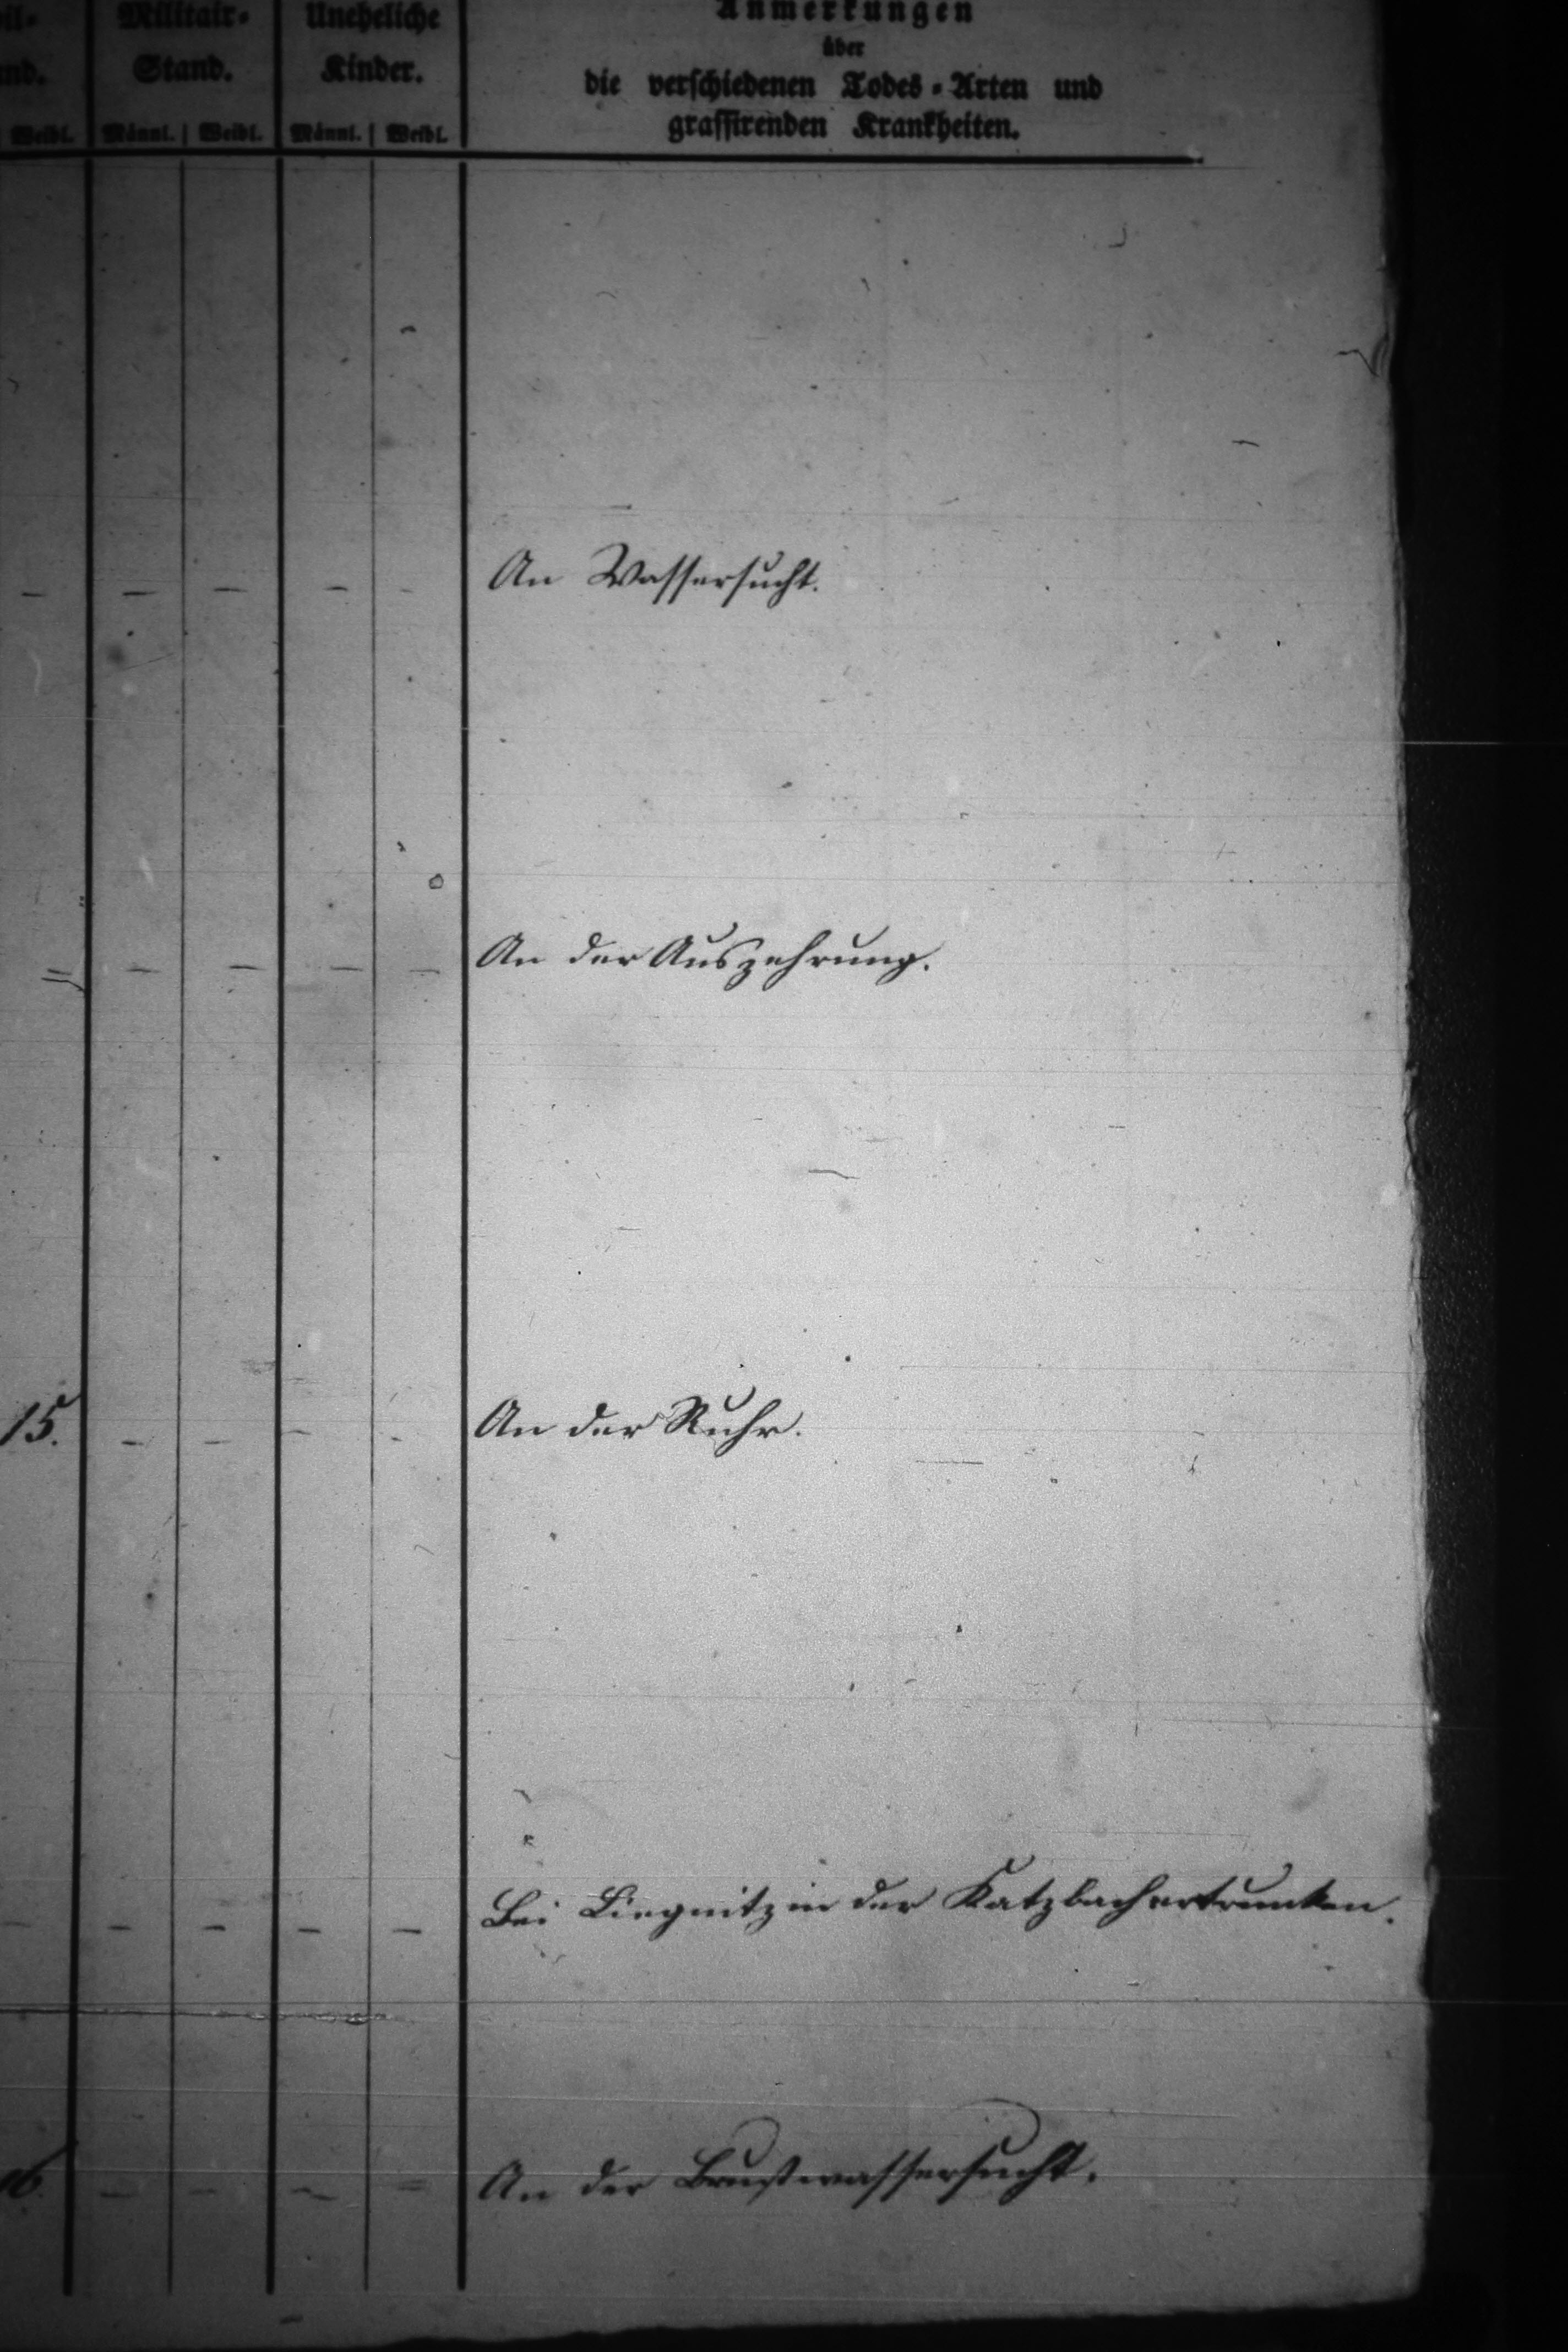 Militair- Uneheliche Anmerkungen
nd. Stand. Kinder. über
die verschiedenen Todes-Arten und
Weibl. Männl. Weibl. Männl. Weibl. grassirenden Krankheiten.
— — — — — An Wassersucht.
— — — — An der Auszehrung.
15. — — — — An der Ruhr.
— — — — Bei Liegnitz in der Katzbach ertrunken.
16. — — — — An der Brustwassersucht.